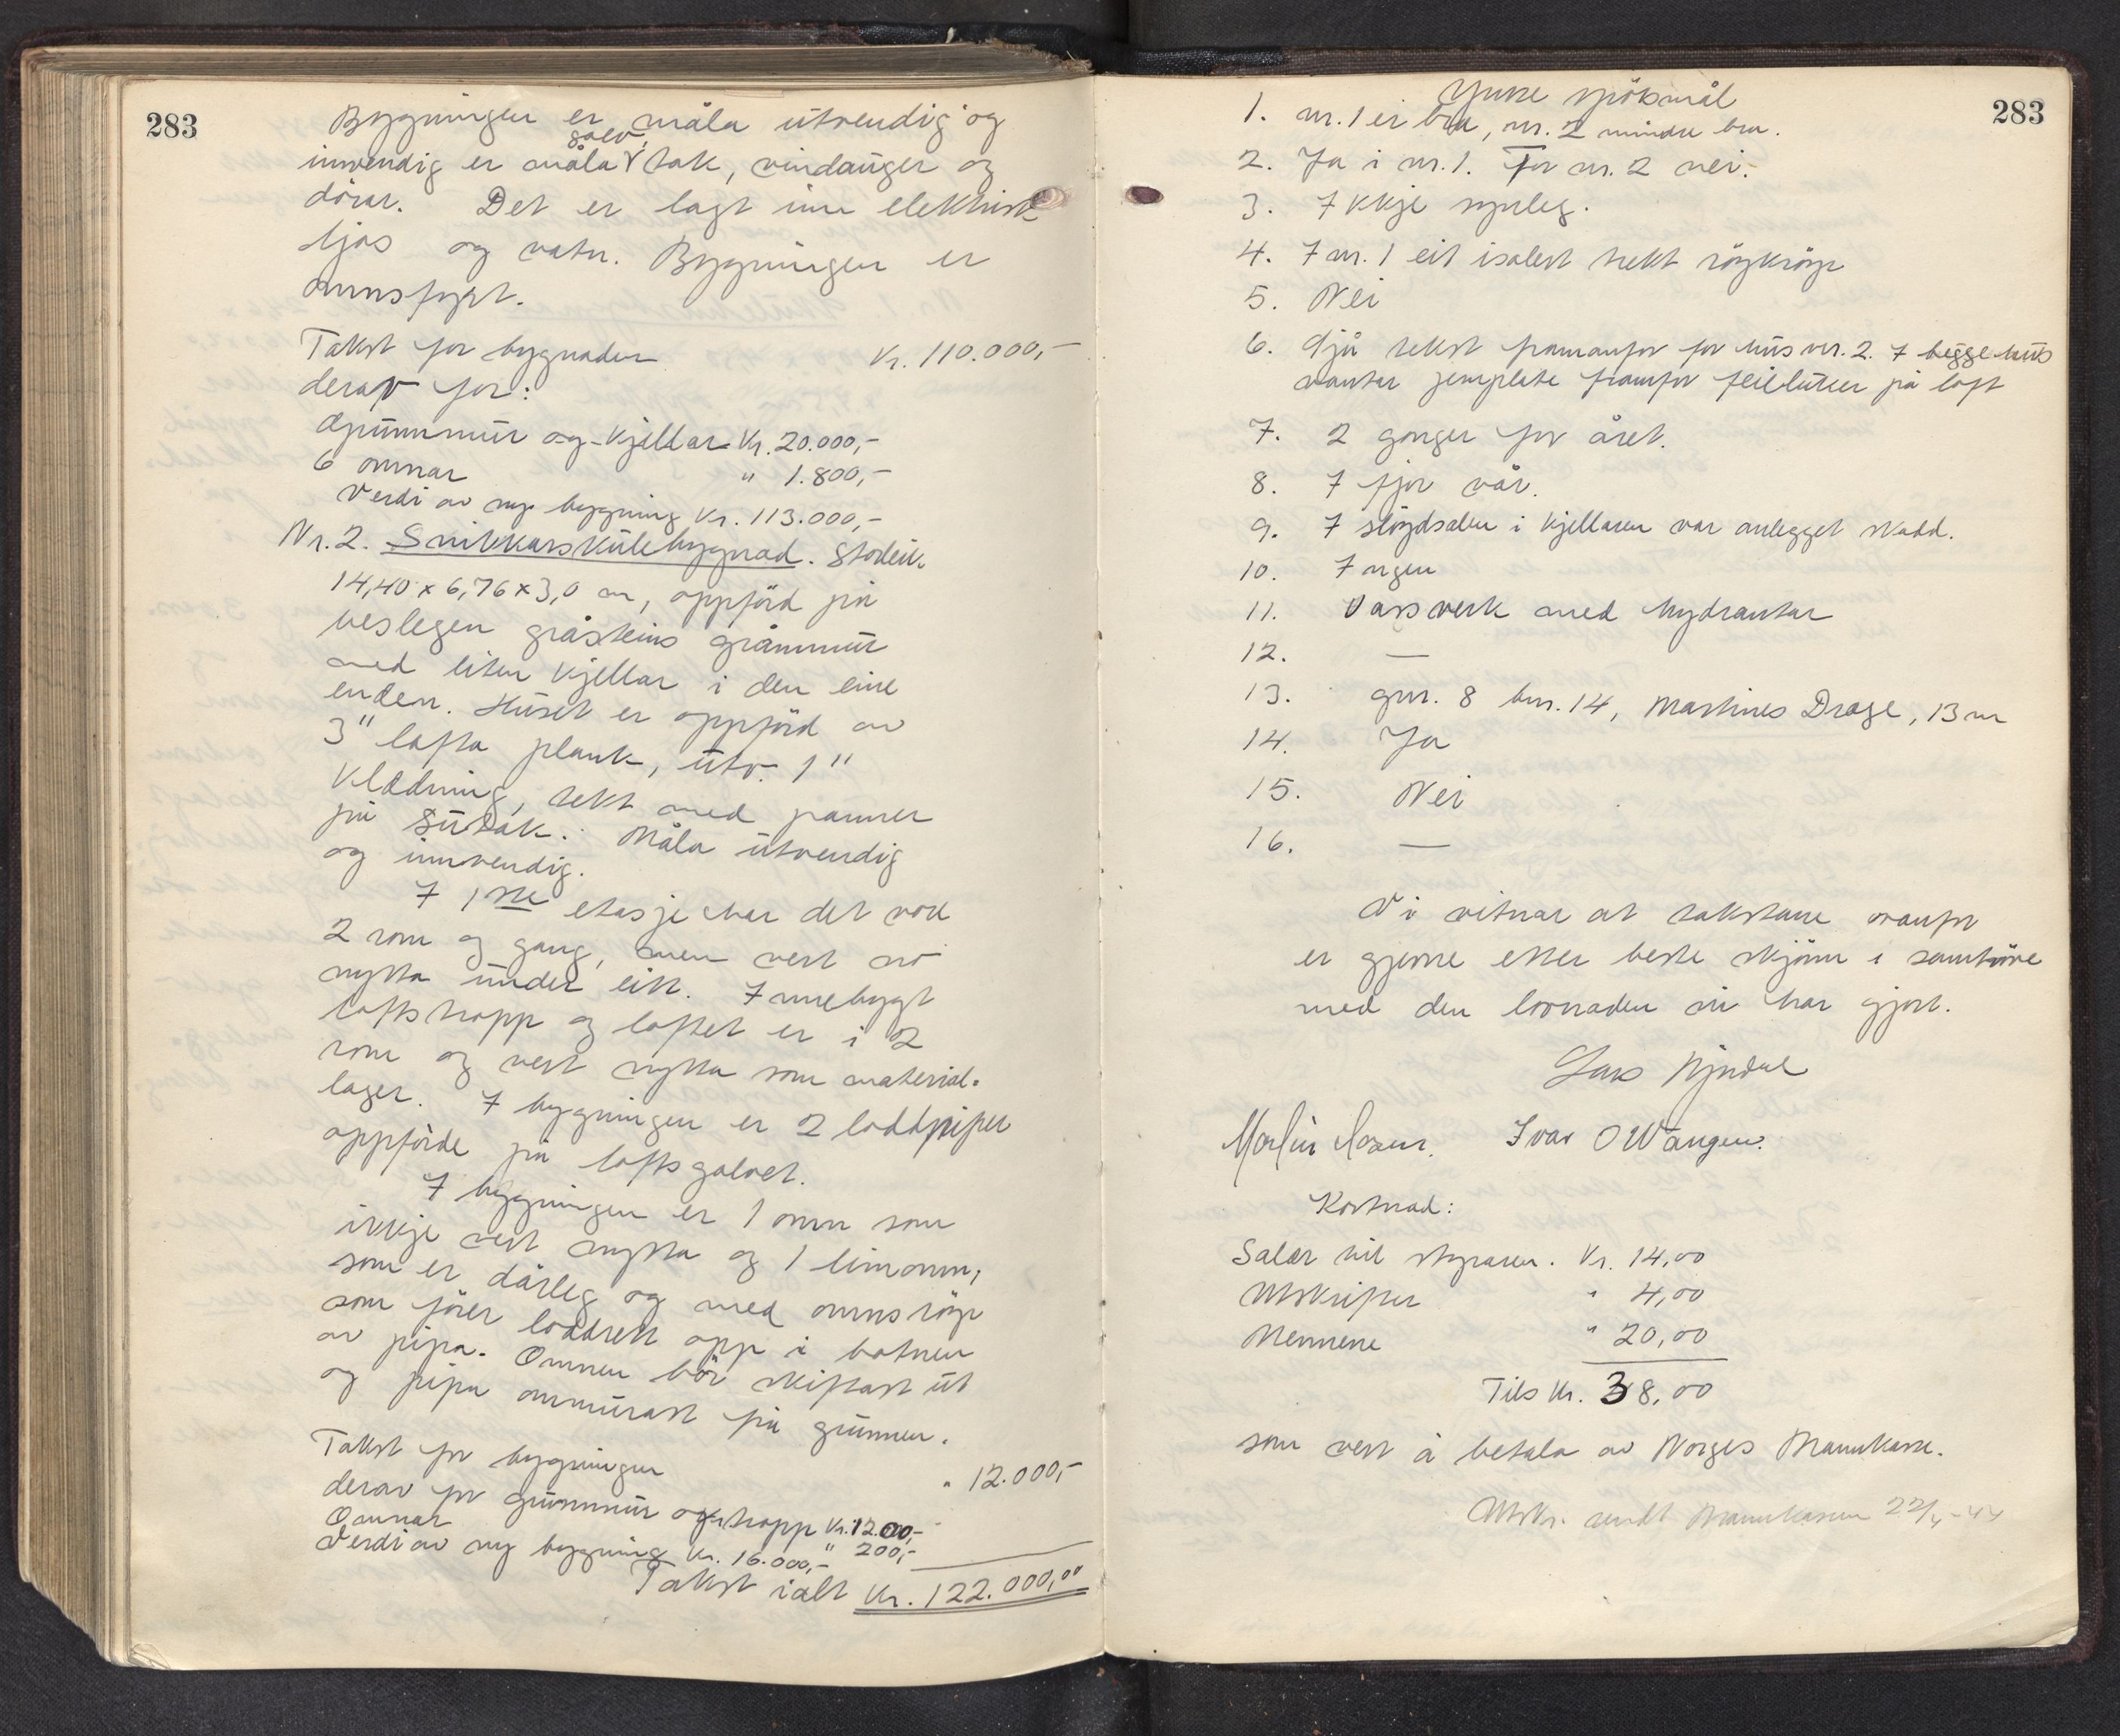 283
Bygningen er måla utvendig og
golv,
innvendig er måla V tak, vindauger og
dörar. Det er lagt inn elektrisk
ljos og vatn. Bygningen er
omnsfyrt.
Takst for bygnaden Kr. 110.000,-
derav for:
Grunnmur og kjellar Kr. 20.000,-
6 omnar " 1.800,-
Verdi av ny bygning Kr. 113.000,-
Nr. 2. Snikkarskulebygnad. Storleik
14,40 x 6,76 x 3,0 m, oppförd på
veslegen gråsteins grunnmur
med liten kjellar i den eine
enden. Huset er oppförd av
3" lafta plank, utv. 1"
Klædning, tekt med panner
på sutak. Måla utvendig
og innvendig.
I 1ste etasje har det vore
2 rom og gang, men vert no
nytta under eitt. Innebygt
loftstropp og loftet er i 2
rom og vert nytta som material-
lager. I bygningen er 2 loddpiper
oppförde på loftsgolvet.
I bygningen er 1 omn som
ikkje vert nytta og 1 limomn,
som er dårleg og med omnsröyr
som förer loddrett opp i botnen
av pipa. Omnen bör skiftast ut
og pipa ommurast frå grunnen.
Takst for bygningen " 12.000,-
derav for grunnmur og tropp Kr. 1200,-
Omnar " 200,-
Verdi av ny bygning Kr. 16.000,-
Takst ialt Kr. 122.000,00
283
Ymse spörsmål
1. nr. 1 er bra, nr. 2 mindre bra.
2. Ja i nr. 1. For nr. 2 nei.
3. Ikkje synleg.
4. I nr. 1 eit isolert trekt röykröyr
5. Nei
6. Sjå tekst framanfor for hus nr. 2. I begge hus
vantar jernplate framfor feieluker på loft
7. 2 gonger for året.
8. I fjor vår.
9. I slöydsalen i kjellaren var anlegget skadd.
10. Ingen
11. Vassverk med hydrantar
12. —
13. gnr. 8 bnr. 14, Martines Drage, 13 m
14. Ja
15. Nei
16. —
Vi vitnar at takstane ovanfor
er gjerne etter beste skjönn i samhöve
med den lovnaden vi har gjort.
Lars
Ivar O Wangen.
Kostnad:
Salær til styraren. Kr. 14,00
Utskrifter " 4,00
Mennene " 20,00
Tils Kr. 38,00
som vert å betala av Norges Brannkasse.
Utskr. sendt Brannkassen 22/4-44